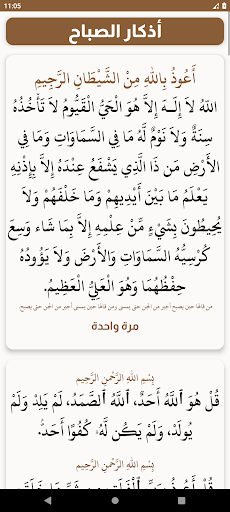 11:05
أذكار الصباح
أَعُوذُ بِاللهِ مِنْ الشَّيْطَانِ الرَّجِيمِ
اللّهُ لاَ إِلَـهَ إِلاَّ هُوَ الْحَيُّ الْقَيُّومُ لاَ تَأْخُذُهُ
سِنَةٌ وَلاَ نَوْمٌ لَّهُ مَا فِي السَّمَاوَاتِ وَمَا فِي
الأَرْضِ مَن ذَا الَّذِي يَشْفَعُ عِنْدَهُ إِلاَّ بِإِذْنِهِ
يَعْلَمُ مَا بَيْنَ أَيْدِيهِمْ وَمَا خَلْفَهُمْ وَلاَ
يُحِيطُونَ بِشَيْءٍ مِّنْ عِلْمِهِ إِلاَّ بِمَا شَاء وَسِعَ
كُرْسِيُّهُ السَّمَاوَاتِ وَالأَرْضَ وَلاَ يَؤُودُهُ
حِفْظُهُمَا وَهُوَ الْعَلِيُّ الْعَظِيمُ.
من قالها حين يصبح أجير من الجن حتى يمسى ومن قالها حين يمسى أجير من الجن حتى يصبح.
مرة واحدة
بِسْمِ اللهِ الرَّحْمنِ الرَّحِيم
قُلْ هُوَ ٱللَّهُ أَحَدٌ، ٱللَّهُ ٱلصَّمَدُ، لَمْ يَلِدْ وَلَمْ
يُولَدْ، وَلَمْ يَكُن لَّهُۥ كُفُوًا أَحَدٌۢ.
بِسْمِ اللهِ الرَّحْمنِ الرَّحِيم
قُلْ أَعُوذُ بِرَبِّ ٱلْفَلَقِ، مِن شَرِّ مَا خَلَقَ